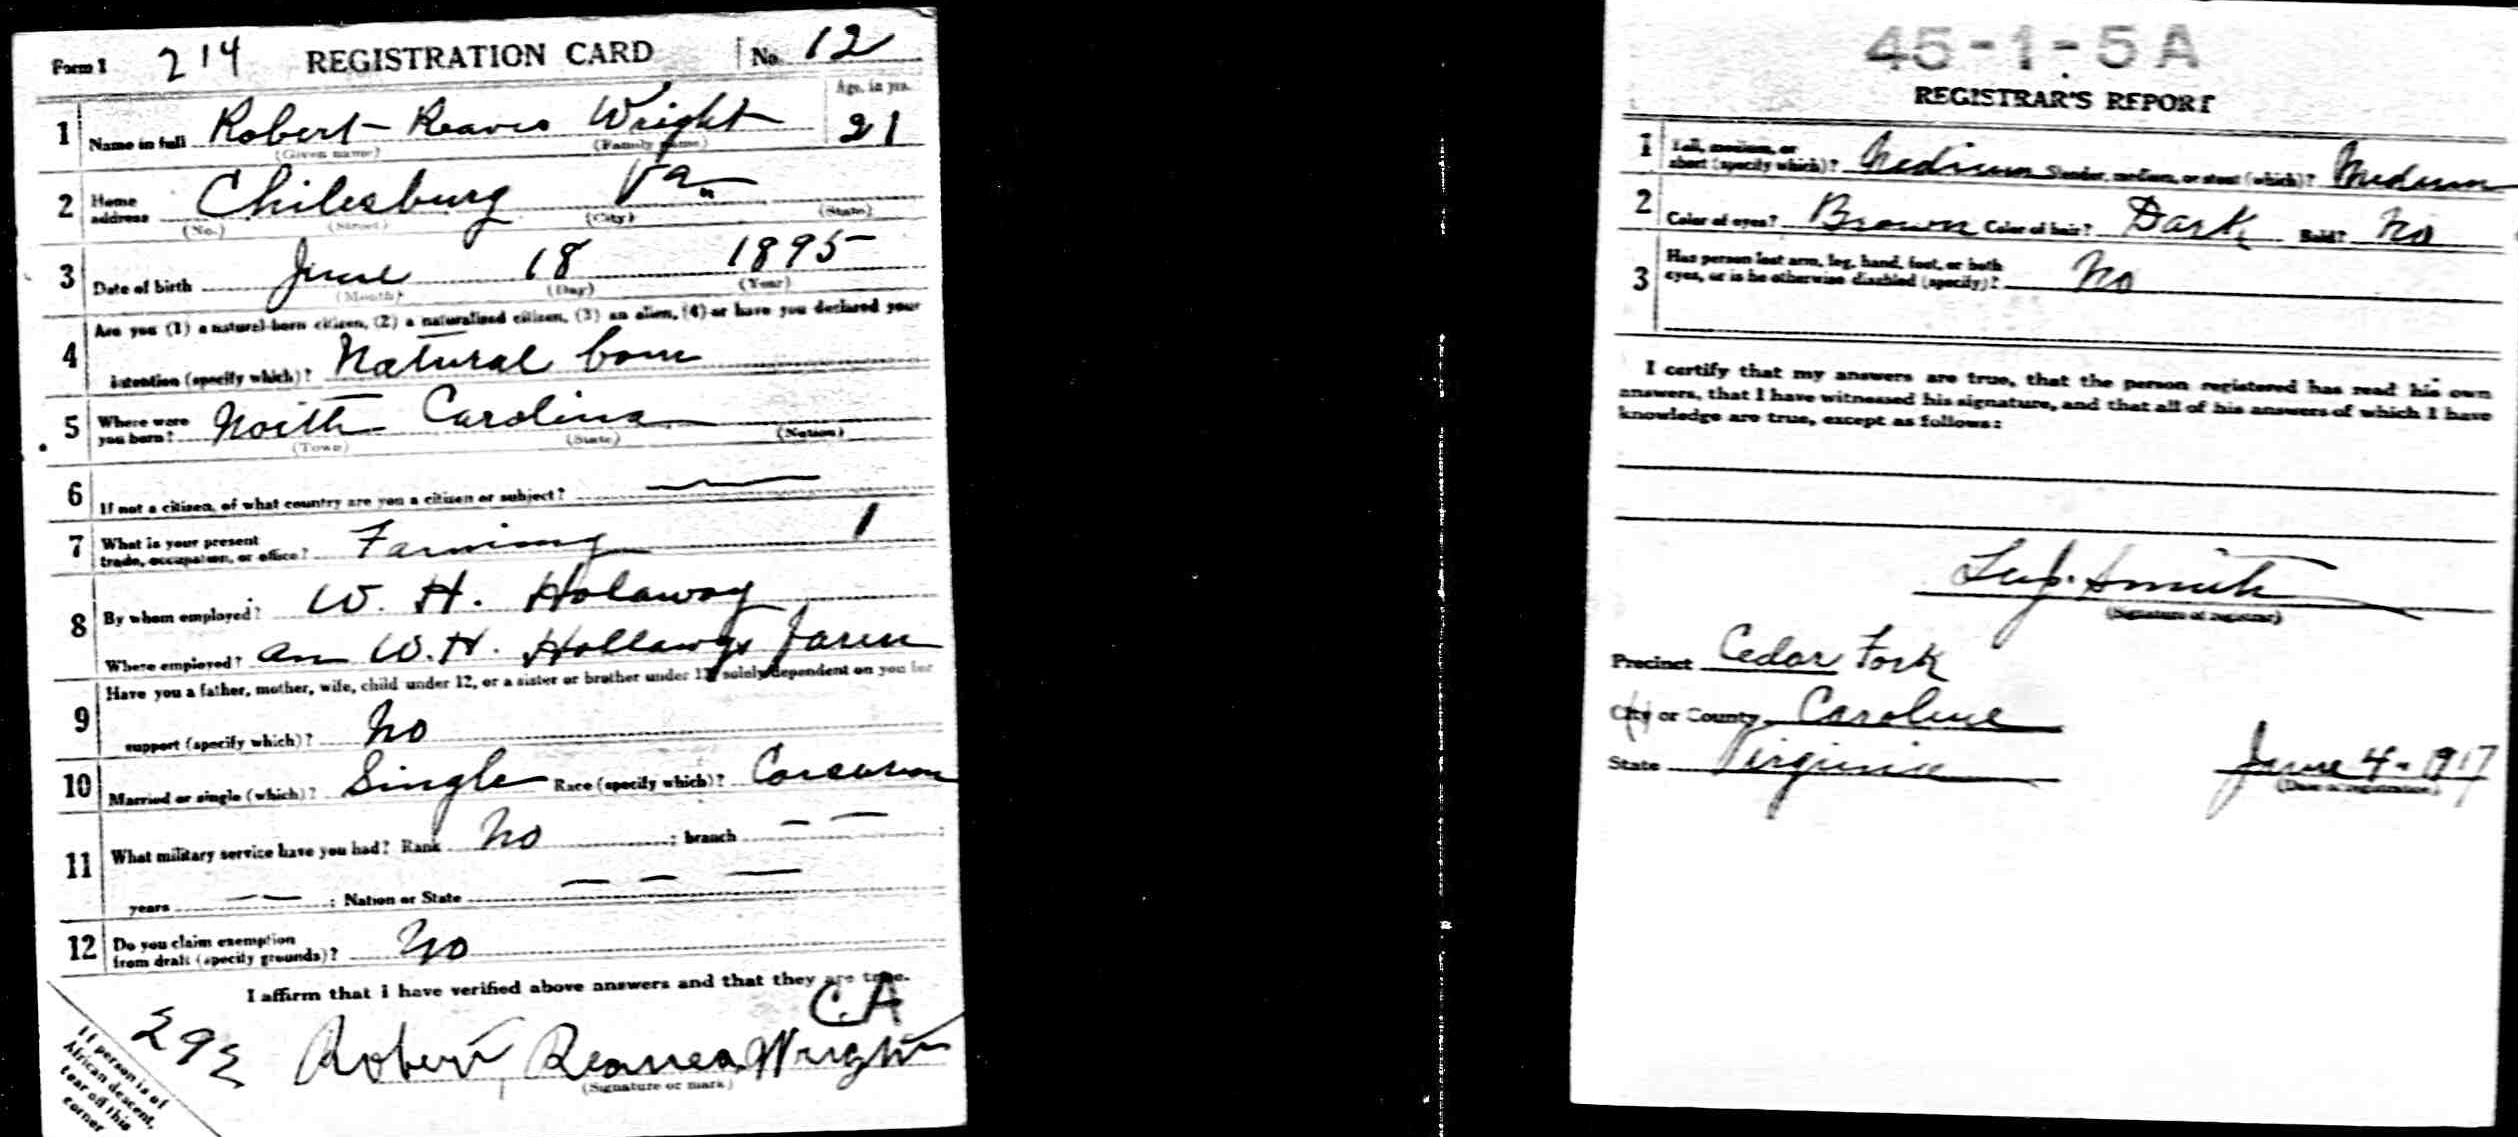 Form 1 214 REGISTRATION CARD No. 12
Age, in yrs.
1 Name in full Robert Reaves Wright 21
(Given name) (Family name)
2 Home address Chilesburg Va.
(No.) (Street) (City) (State)
3 Date of birth June 18 1895
(Month) (Day) (Year)
4 Are you (1) a natural-born citizen, (2) a naturalized citizen, (3) an alien, (4) or have you declared your
intention (specify which)? Natural born
5 Where were you born? North Carolina
(Town) (State) (Nation)
6 If not a citizen, of what country are you a citizen or subject?
7 What is your present trade, occupation, or office? Farming 1
8 By whom employed? W. H. Holaway
Where employed? on W. H. Hollaways farm
9 Have you a father, mother, wife, child under 12, or a sister or brother under 12 solely dependent on you for
support (specify which)? No
10 Married or single (which)? Single Race (specify which)?
11 What military service have you had? Rank No ; branch — — ;
years — — ; Nation or State — — —
12 Do you claim exemption from draft (specify grounds)? No
I affirm that I have verified above answers and that they are true.
C.A
292 Robert Reaves Wright
(Signature or mark)
If person is of
African descent,
tear off this
corner
45-1-5 A
REGISTRAR'S REPORT
1 Tall, medium, or short (specify which)? Medium Slender, medium, or stout (which)? Medium
2 Color of eyes? Brown Color of hair? Dark Bald? No
3 Has person lost arm, leg, hand, foot, or both eyes, or is he otherwise disabled (specify)? No
I certify that my answers are true, that the person registered has read his own
answers, that I have witnessed his signature, and that all of his answers of which I have
knowledge are true, except as follows:
Smith
(Signature of registrar)
Precinct Cedar Fork
City or County Caroline
State Virginia June 4 - 1917
(Date of registration)